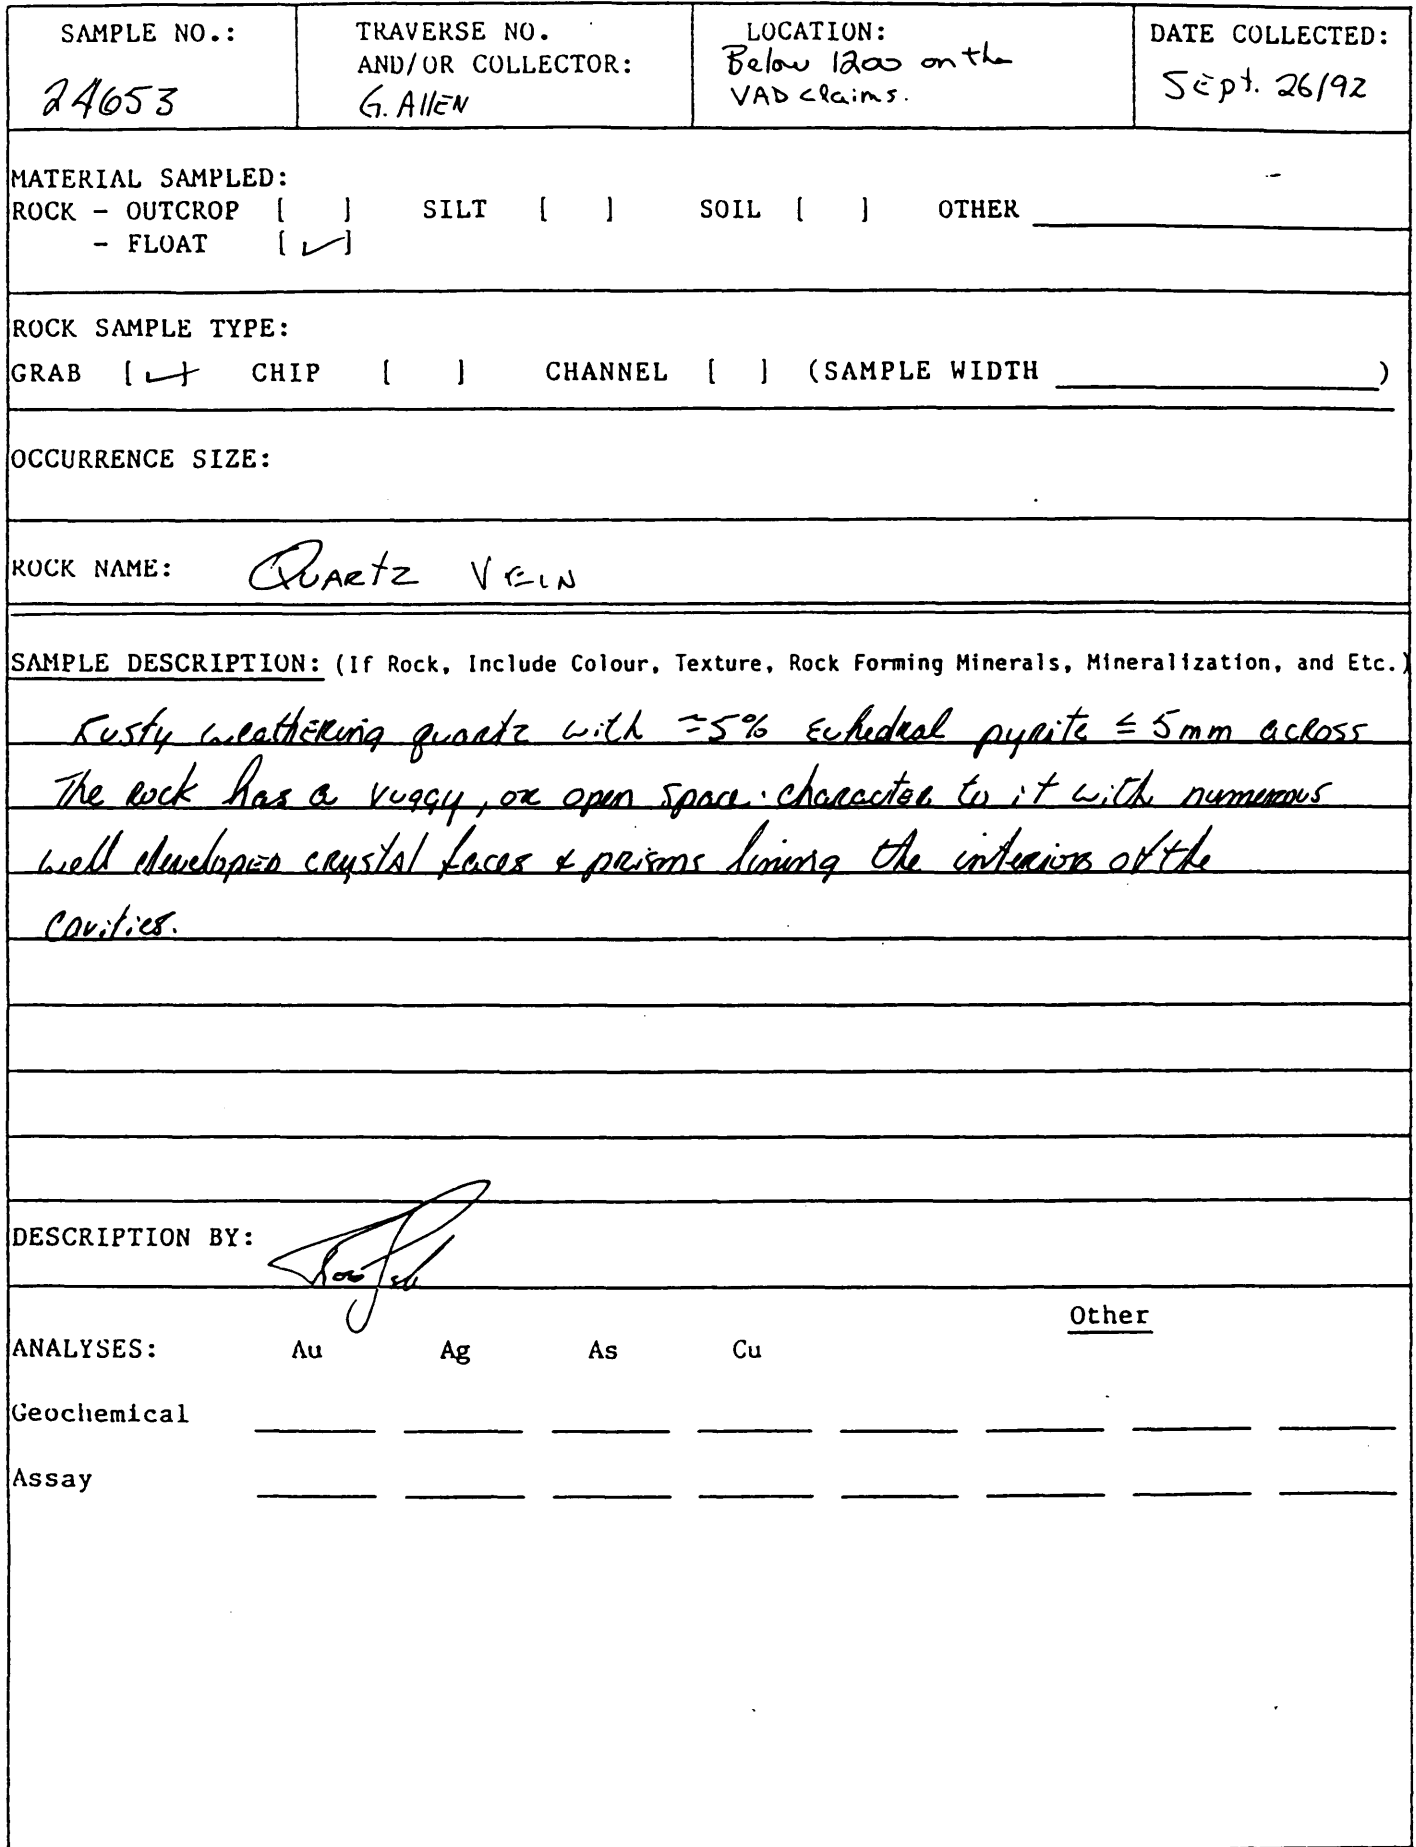 SAMPLE NO.:
24653
TRAVERSE NO.
AND/OR COLLECTOR:
G. Allen
LOCATION:
Below 1200 on the
VAD claims.
DATE COLLECTED:
Sept. 26/92
MATERIAL SAMPLED:
ROCK - OUTCROP [ ] SILT [ ] SOIL [ ] OTHER
- FLOAT [✓]
ROCK SAMPLE TYPE:
GRAB [✓] CHIP [ ] CHANNEL [ ] (SAMPLE WIDTH )
OCCURRENCE SIZE:
ROCK NAME: Quartz Vein
SAMPLE DESCRIPTION: (If Rock, Include Colour, Texture, Rock Forming Minerals, Mineralization, and Etc.)
Rusty weathering quartz with ≈5% Euhedral pyrite ≤ 5mm across
The rock has a vuggy, or open space character to it with numerous
well developed crystal faces & prisms lining the interiors of the
cavities.
DESCRIPTION BY:
Other
ANALYSES: Au Ag As Cu
Geochemical
Assay